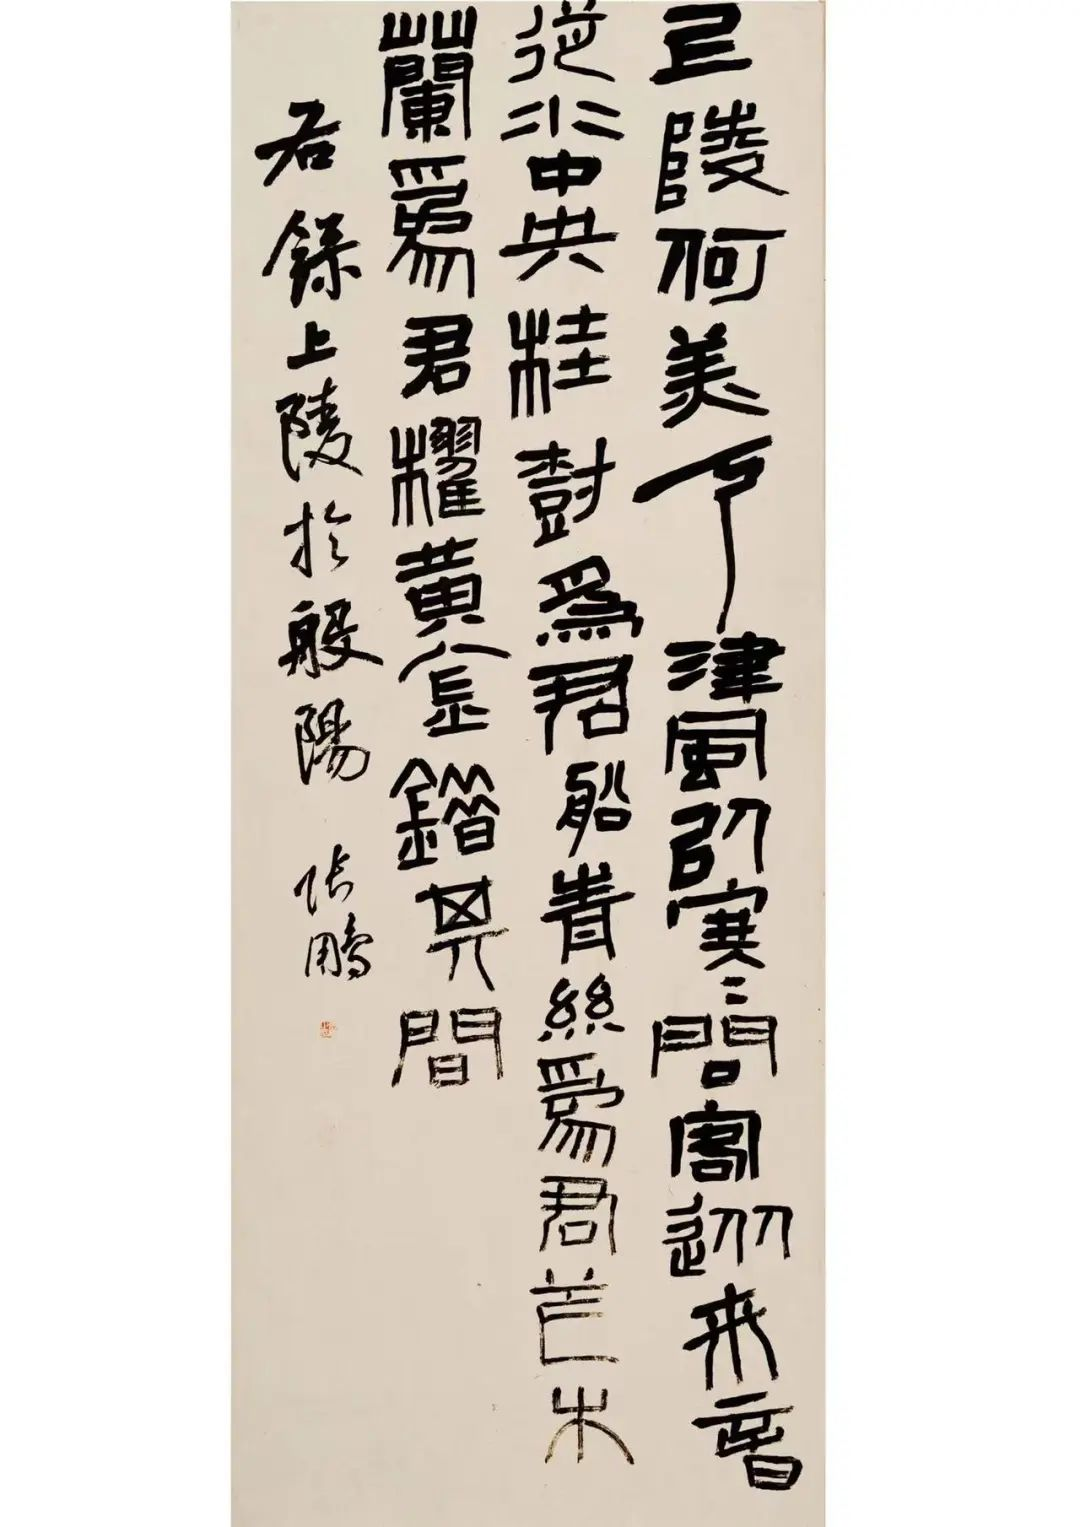 上陵何美下津風以寒〻問客從來言
從水中央桂樹爲君船青絲爲君笮木
蘭爲君櫂黃金錯其間
右錄上陵於般陽 張鵬